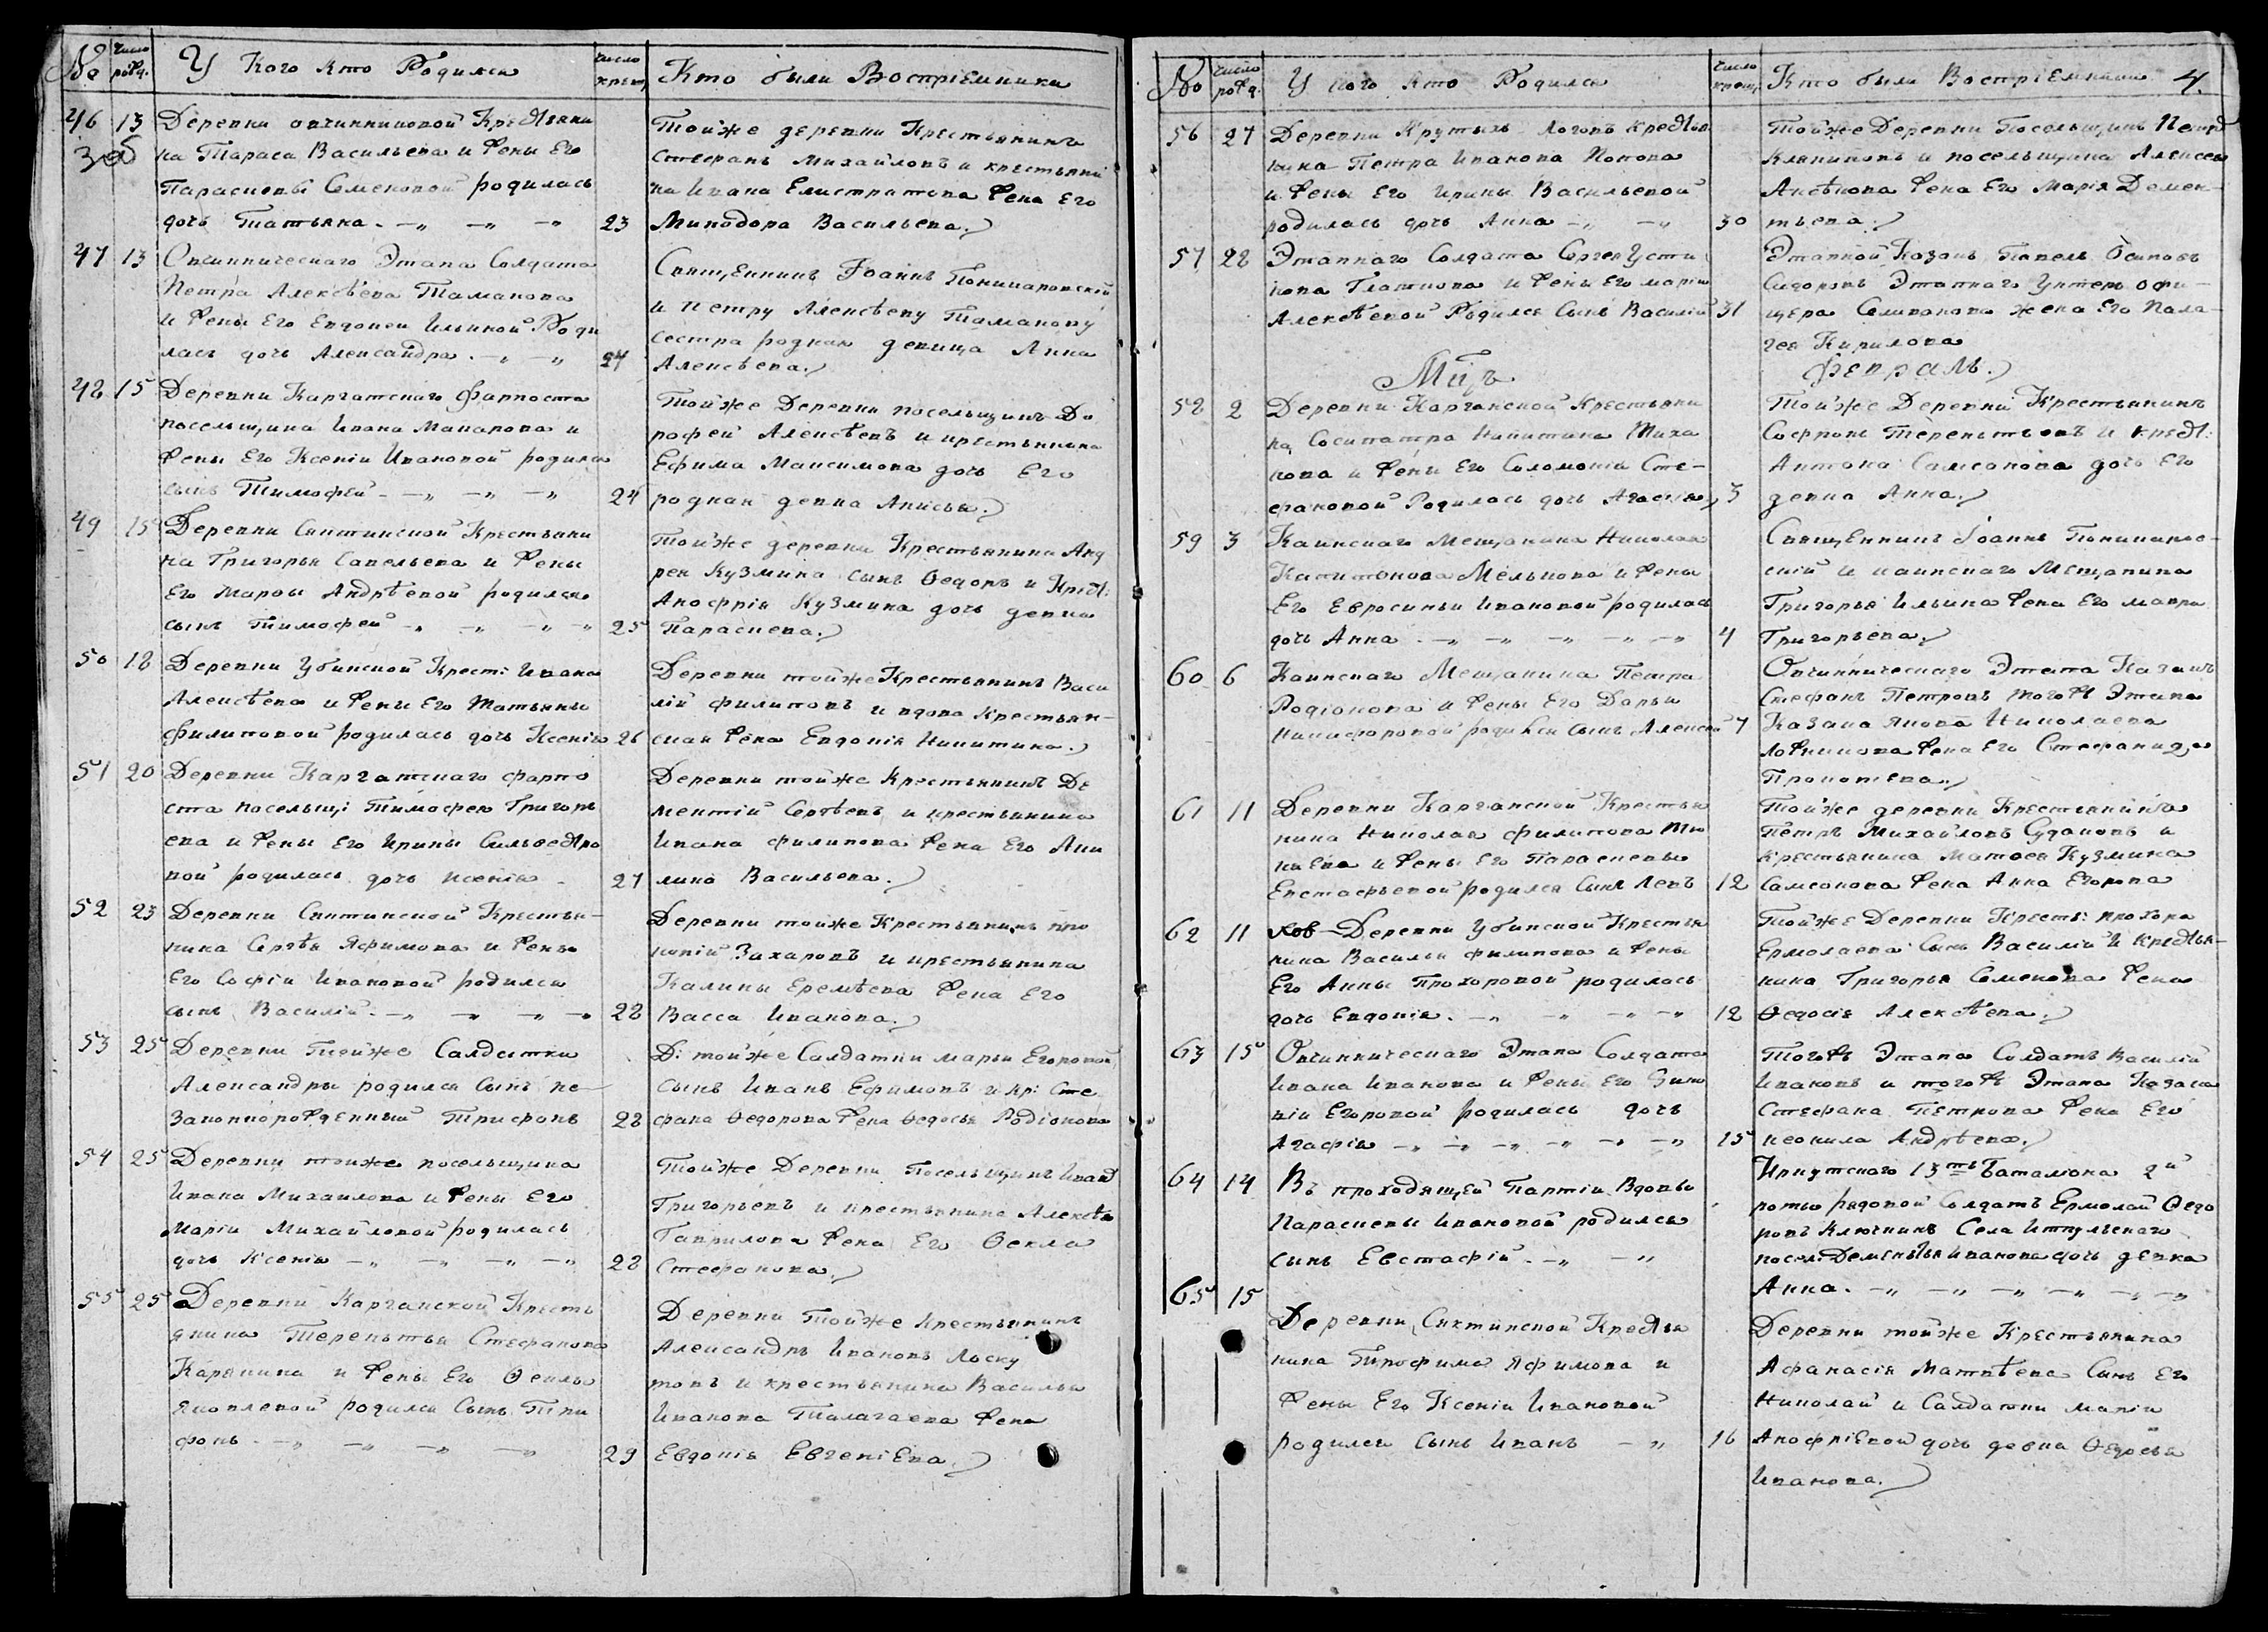 № число рожд. У Кого кто Родился число крещ. Кто были Восприемники
46 13 Деревни овчинниковой Крестьяни
Зоб
на Тараса Васильева и жены Его
Парасковьи Семеновой родилась
дочь Татьяна. 23
Тойже деревни Крестьянинъ
Стефанъ Михайловъ и крестьяни
на Ивана Елистратова жена Его
Минодора Васильева.
47 13 Овчинническаго Этапа Солдата
Петра Алексѣева Таманова
и жены Его Евдокеи Ильиной Роди
лась дочь Александра. 24
Священникъ Іоаннъ Пономаровскій
и Петру Алексѣеву Таманову
сестра родная девица Анна
Алексѣева.
48 15 Деревни Каргатскаго Фарпоста
посельщика Ивана Маканова и
жены Его Ксеніи Ивановой родился
сынъ Тимофей 24
Тойже Деревни посельщикъ До
рофей Алексѣевъ и крестьянина
Ефима Максимова дочь Его
родная девка Анисья.
49 15 Деревни Сектинской Крестьяни
на Григорья Савельева и жены
Его Марфы Андрѣевой родился
сынъ Тимофей 25
Тойже деревни Крестьянина Анд
рея Кузмина сынъ Ѳедоръ и Крест:
Анофрія Кузмина дочь девка
Параскева.
50 18 Деревни Убинской Крест: Ивана
Алексѣева и жены Его Татьяны
Филиповой родилась дочь Ксенія 26
Деревни тойже Крестьянинъ Васи
лій Филиповъ и вдова Крестьян-
ская жена Евдокія Никитина.
51 20 Деревни Каргатскаго фарпо
ста посельщ: Тимофея Григорь
ева и жены Его Ирины Сильвестро
вой родилась дочь Ксенія 27
Деревни тойже Крестьянинъ Де
ментій Сергѣевъ и крестьянина
Ивана Филипова жена Его Аки
лина Васильева.
52 23 Деревни Сектинской Крестья-
нина Сергѣя Яфимова и жены
Его Софіи Ивановой родился
сынъ Василій. 28
Деревни тойже Крестьянинъ Про
копій Захаровъ и крестьянина
Калины Еремѣева жена Его
Васса Иванова.
53 25 Деревни Тойже Салдатки
Александры родился Сынъ не-
законнорожденный Трифонъ 28
Д: тойже Салдатки марьи Егоровой
сынъ Иванъ Ефимовъ и кр: Сте
фана Ѳедорова жена Ѳедосья Родіонова
54 25 Деревни тойже посельщика
Ивана Михайлова и жены Его
Маріи Михайловой родилась
дочь Ксенія 28
Тойже Деревни Посельщикъ Иванъ
Григорьевъ и крестьянина Алексѣя
Гаврилова жена Его Ѳекла
Стефанова.
55 25 Деревни Карганской Кресть
янина Терентья Стефанова
Карякина и жены Его Ѳеклы
Яковлевой родился Сынъ Три
фонъ 29
Деревни Тойже Крестьянинъ
Александръ Ивановъ Лоску
товъ и крестьянина Василья
Иванова Талагаева жена
Евдокія Евгеніева.
№ число рожд. У кого кто Родился число крещ. Кто были Восприемники 4.
56 27 Деревни Крутыхъ Логовъ Крестья
нина Петра Иванова Попова
и жены Его Ирины Васильевой
родилась дочь Анна 30
Тойже Деревни Посельщикъ Петръ
и посельщика Алексея
жена Его Марія Демен-
тьева.
57 28 Этапнаго Солдата Сергея Усти
нова и жены Его маріи
Алексѣевой Родился Сынъ Василій 31
Этапной Казакъ Павелъ Осиповъ
Сидоровъ Этапнаго Унтеръ офи-
цера Селиванова жена Его Пела-
гея Кирилова
Мцъ Февраль.
58 2 Деревни Карганской Крестьяни
на Сосипатра Никитина Тиха
нова и жены Его Соломоніи Сте-
фановой Родилась дочь Агафія 3
Тойже Деревни Крестьянинъ
Софронъ Терентьевъ и крест:
Антона Самсонова дочь Его
девка Анна.
59 3 Каинскаго Мещанина Николая
Капитонова Мельнова и жены
Его Евросиньи Ивановой родилась
дочь Анна 4
Священникъ Іоаннъ Пономаров-
скій и каинскаго Мещанина
Григорья Ильина жена Его мавра
Григорьева.
60 6 Каинскаго Мещанина Петра
Родіонова и жены Его Дарьи
Никифоровой родился сынъ Алексей 7
Овчинническаго Этапа Казакъ
Стефанъ Петровъ тогожъ Этапа
Казака Якова Николаева
Ложникова жена Его Стефанида
Прокопьева.
61 11 Деревни Карганской Крестья
нина Николая Филипова Ти
каева и жены Его Парасковьи
Евстафьевой родился Сынъ Левъ 12
Тойже деревни Крестьянина
Петръ Михайловъ Судаковъ и
крестьянина Матвея Кузмина
Самсонова жена Анна Егорова
62 11 Деревни Убинской Крестья
нина Василья Филипова и жены
Его Анны Прохоровой родилась
дочь Евдокія. 12
Тойже Деревни Кресть: прохора
Ермолаева Сынъ Василій и крестья-
нина Григорья Семенова жена
Ѳедосія Алексѣева.
63 15 Овчинническаго Этапа Солдата
Ивана Иванова и жены Его Зино
віи Егоровой родилась дочь
Агафія 15
Тогожъ Этапа Солдатъ Василій
Ивановъ и тогожъ Этапа Казака
Стефана Петрова жена Его
неонила Андрѣева.
64 14 Въ проходящей Партіи Вдовы
Парасковьи Ивановой родился
сынъ Евстафій.
Иркутскаго 13го Баталіона 2й
роты рядовой Солдатъ Ермолай Ѳедо
ровъ Ключкинъ Села Иткульскаго
посел: Дементья Иванова дочь девка
Анна.
65 15
Деревни Сектинской Крестья
нина Трофима Яфимова и
жены Его Ксеніи Ивановой
родился сынъ Иванъ 16
Деревни тойже Крестьянина
Афанасія Матвѣева Сынъ Его
Николай и Салдатки маріи
Анофріевой дочь девка Ѳедосья
Иванова.